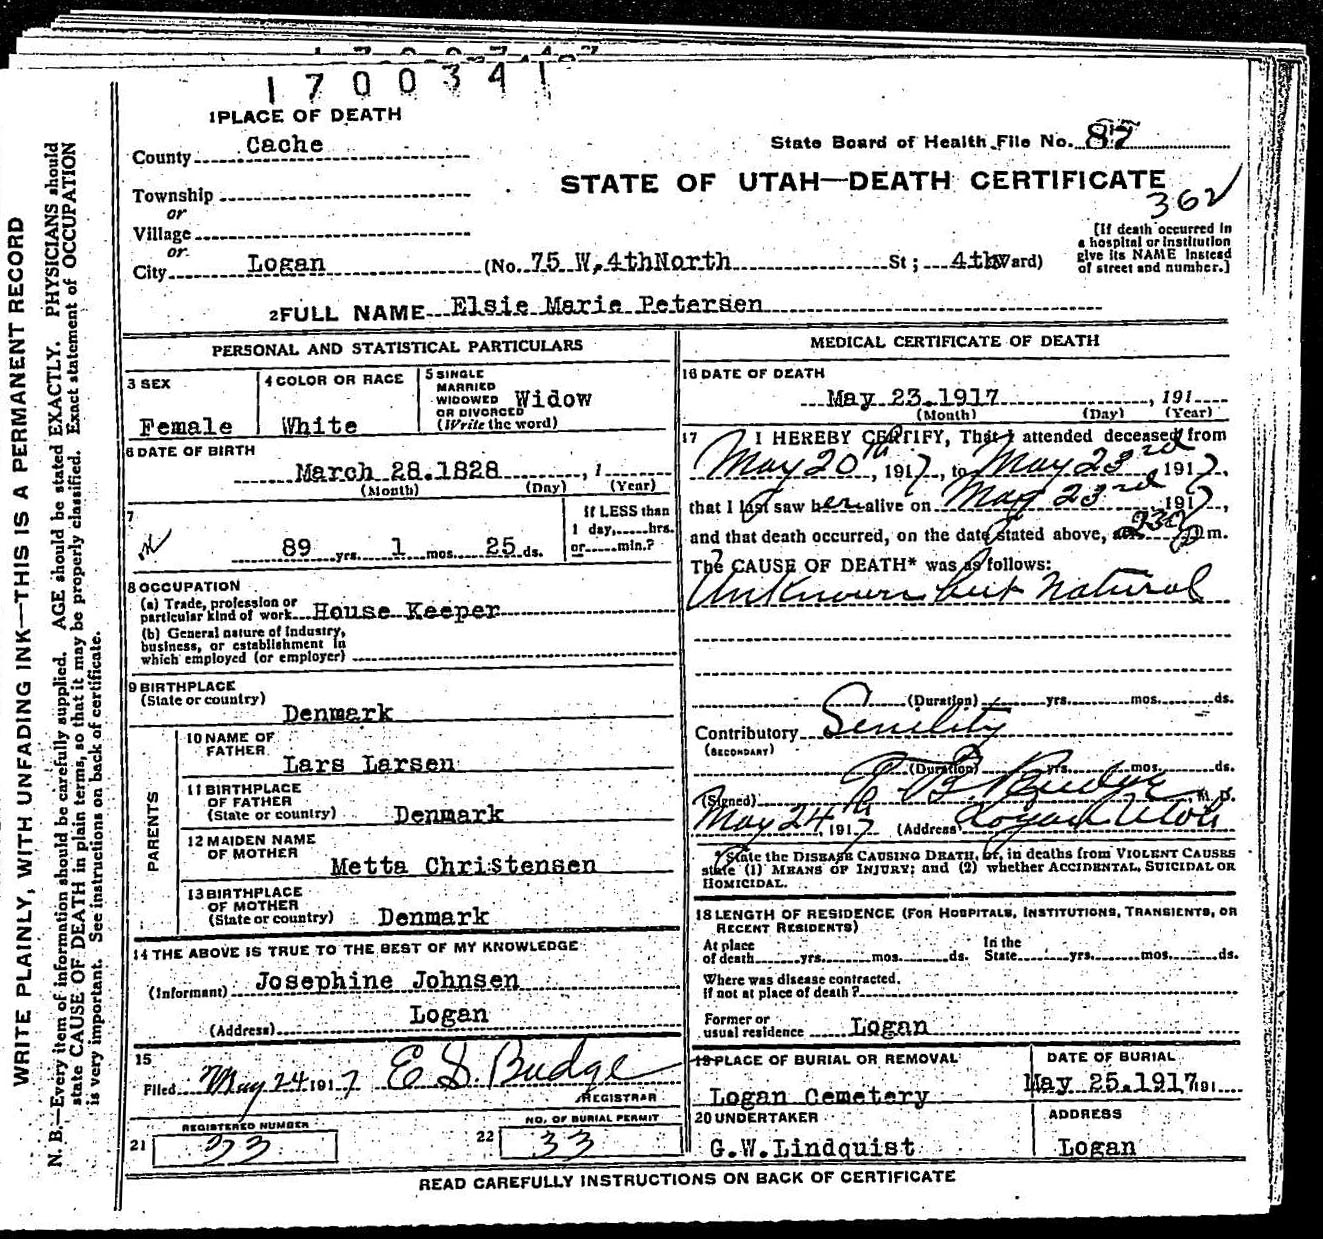 1700341
1 PLACE OF DEATH
County Cache
State Board of Health File No. 87
STATE OF UTAH—DEATH CERTIFICATE
362
Township
or
Village
or
City Logan (No. 75 W. 4thNorth St; 4th Ward)
[If death occurred in
a hospital or institution
give its NAME instead
of street and number.]
2 FULL NAME Elsie Marie Petersen
PERSONAL AND STATISTICAL PARTICULARS
3 SEX
Female
4 COLOR OR RACE
White
5 SINGLE
MARRIED
WIDOWED
OR DIVORCED
(Write the word)
Widow
6 DATE OF BIRTH
March 28.1828, 1
(Month) (Day) (Year)
7
89 yrs. 1 mos. 25 ds.
If LESS than
1 day, hrs.
or min.?
8 OCCUPATION
(a) Trade, profession or
particular kind of work House Keeper
(b) General nature of industry,
business, or establishment in
which employed (or employer)
9 BIRTHPLACE
(State or country)
Denmark
PARENTS
10 NAME OF
FATHER
Lars Larsen
11 BIRTHPLACE
OF FATHER
(State or country) Denmark
12 MAIDEN NAME
OF MOTHER
Metta Christensen
13 BIRTHPLACE
OF MOTHER
(State or country) Denmark
14 THE ABOVE IS TRUE TO THE BEST OF MY KNOWLEDGE
(Informant) Josephine Johnsen
(Address) Logan
15
Filed May 24 1917 E S. Budge
REGISTRAR
REGISTERED NUMBER
21 33
NO. OF BURIAL PERMIT
22 33
MEDICAL CERTIFICATE OF DEATH
16 DATE OF DEATH
May 23.1917, 191
(Month) (Day) (Year)
17 I HEREBY CERTIFY, That I attended deceased from
May 20th, 1917, to May 23rd, 1917,
that I last saw her alive on May 23rd, 1917,
and that death occurred, on the date stated above, at 230 p m.
The CAUSE OF DEATH* was as follows:
Unknown but Natural
(Duration) yrs. mos. ds.
Contributory Senility
(SECONDARY)
(Duration) yrs. mos. ds.
(Signed) Budge M. D.
May 24th 1917 (Address) Logan Utah
*State the DISEASE CAUSING DEATH, or, in deaths from VIOLENT CAUSES
state (1) MEANS OF INJURY; and (2) whether ACCIDENTAL, SUICIDAL OR
HOMICIDAL.
18 LENGTH OF RESIDENCE (FOR HOSPITALS, INSTITUTIONS, TRANSIENTS, OR
RECENT RESIDENTS)
At place
of death yrs. mos. ds.
In the
State yrs. mos. ds.
Where was disease contracted.
If not at place of death?
Former or
usual residence Logan
19 PLACE OF BURIAL OR REMOVAL
Logan Cemetery
DATE OF BURIAL
May 25.1917 191
20 UNDERTAKER
G.W.Lindquist
ADDRESS
Logan
READ CAREFULLY INSTRUCTIONS ON BACK OF CERTIFICATE
WRITE PLAINLY, WITH UNFADING INK—THIS IS A PERMANENT RECORD
N. B.—Every item of information should be carefully supplied. AGE should be stated EXACTLY. PHYSICIANS should
state CAUSE OF DEATH in plain terms, so that it may be properly classified. Exact statement of OCCUPATION
is very important. See instructions on back of certificate.